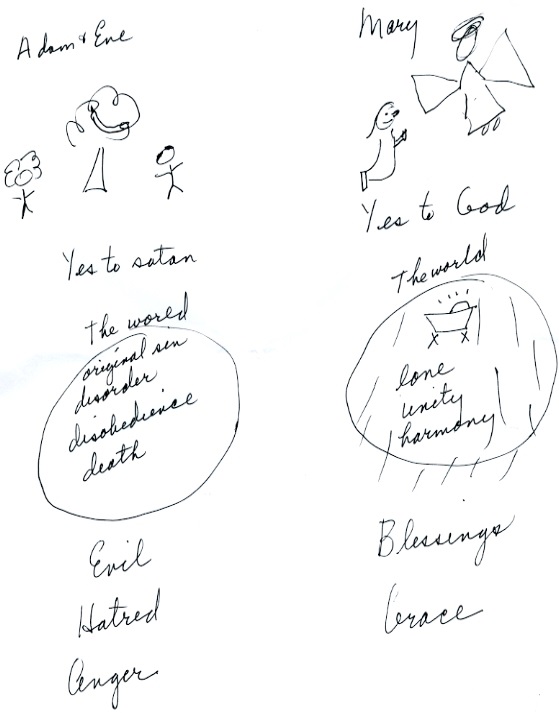 Adam & Eve
Yes to satan
The world
original sin
disorder
disobedience
death
Evil
Hatred
Anger
Mary
Yes to God
The world
love
unity
harmony
Blessings
Grace